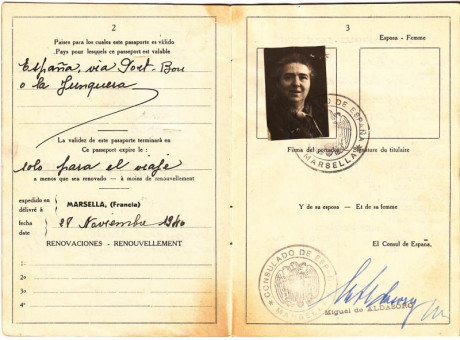 2
Países para los cuales este pasaporte es válido
Pays pour lesquels ce passeport est valable
España, via Port-Bou
o la Junquera
La validez de este pasaporte terminará en
Ce passeport expire le:
solo para el viaje
a menos que sea renovado — à moins de renouvellement
expedido en
délivré à
MARSELLA, (Francia)
fecha
date
28 Noviembre 1940
RENOVACIONES - RENOUVELLEMENT
1.º
2.º
3º
4º
3
Esposa - Femme
CONSULADO DE ESPAÑA
MARSELLA
Firma del portador Signature du titulaire
Y de su esposa — Et de sa femme
El Consul de España,
CONSULADO DE ESPAÑA
MARSELLA
Miguel de ALDASORO